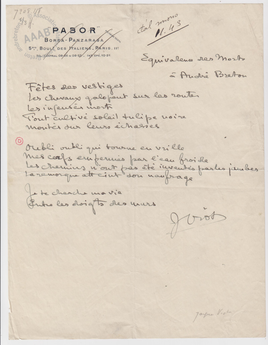 PABOR
Bords-Panzarasa
5ter, Boul.t des Italiens, Paris.
col mono
11.43
Équivalence des Morts
à André Breton
Fêtes des vestiges
Les chevaux galopent sur les routes
Les insensés
Tout cultivé soleil tulipe noire
Montés sur leurs échasses
Oubli oubli qui tourne en vrille
Mes corps par l'eau froide
Les chemins n'ont pas été inventés par les jambes
La remorque atteint son naufrage
Je te cherche ma vie
Entre les doigts des murs
J. Viot